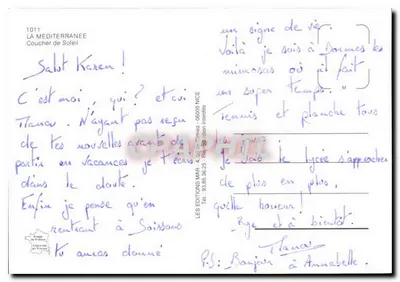 1011
LA MEDITERRANEE
Coucher de Soleil
Salut Karen !
C'est moi, qui ? et oui
N'ayant pas reçu
de tes nouvelles avant de
partir en vacances je t'écris
dans le doute.
Enfin je pense qu'en
rentrant à Soissons
tu auras donné
LES EDITIONS MAR
06000 NICE
un signe de vie.
Voilà je suis à Bormes les
mimosas où il fait
un super temps. "
Tennis et planche tous
les jours
Je vois le lycée s'approcher
de plus en plus,
quelle horreur!
Bye et à bientôt.
P.S: Bonjour à Annabelle.